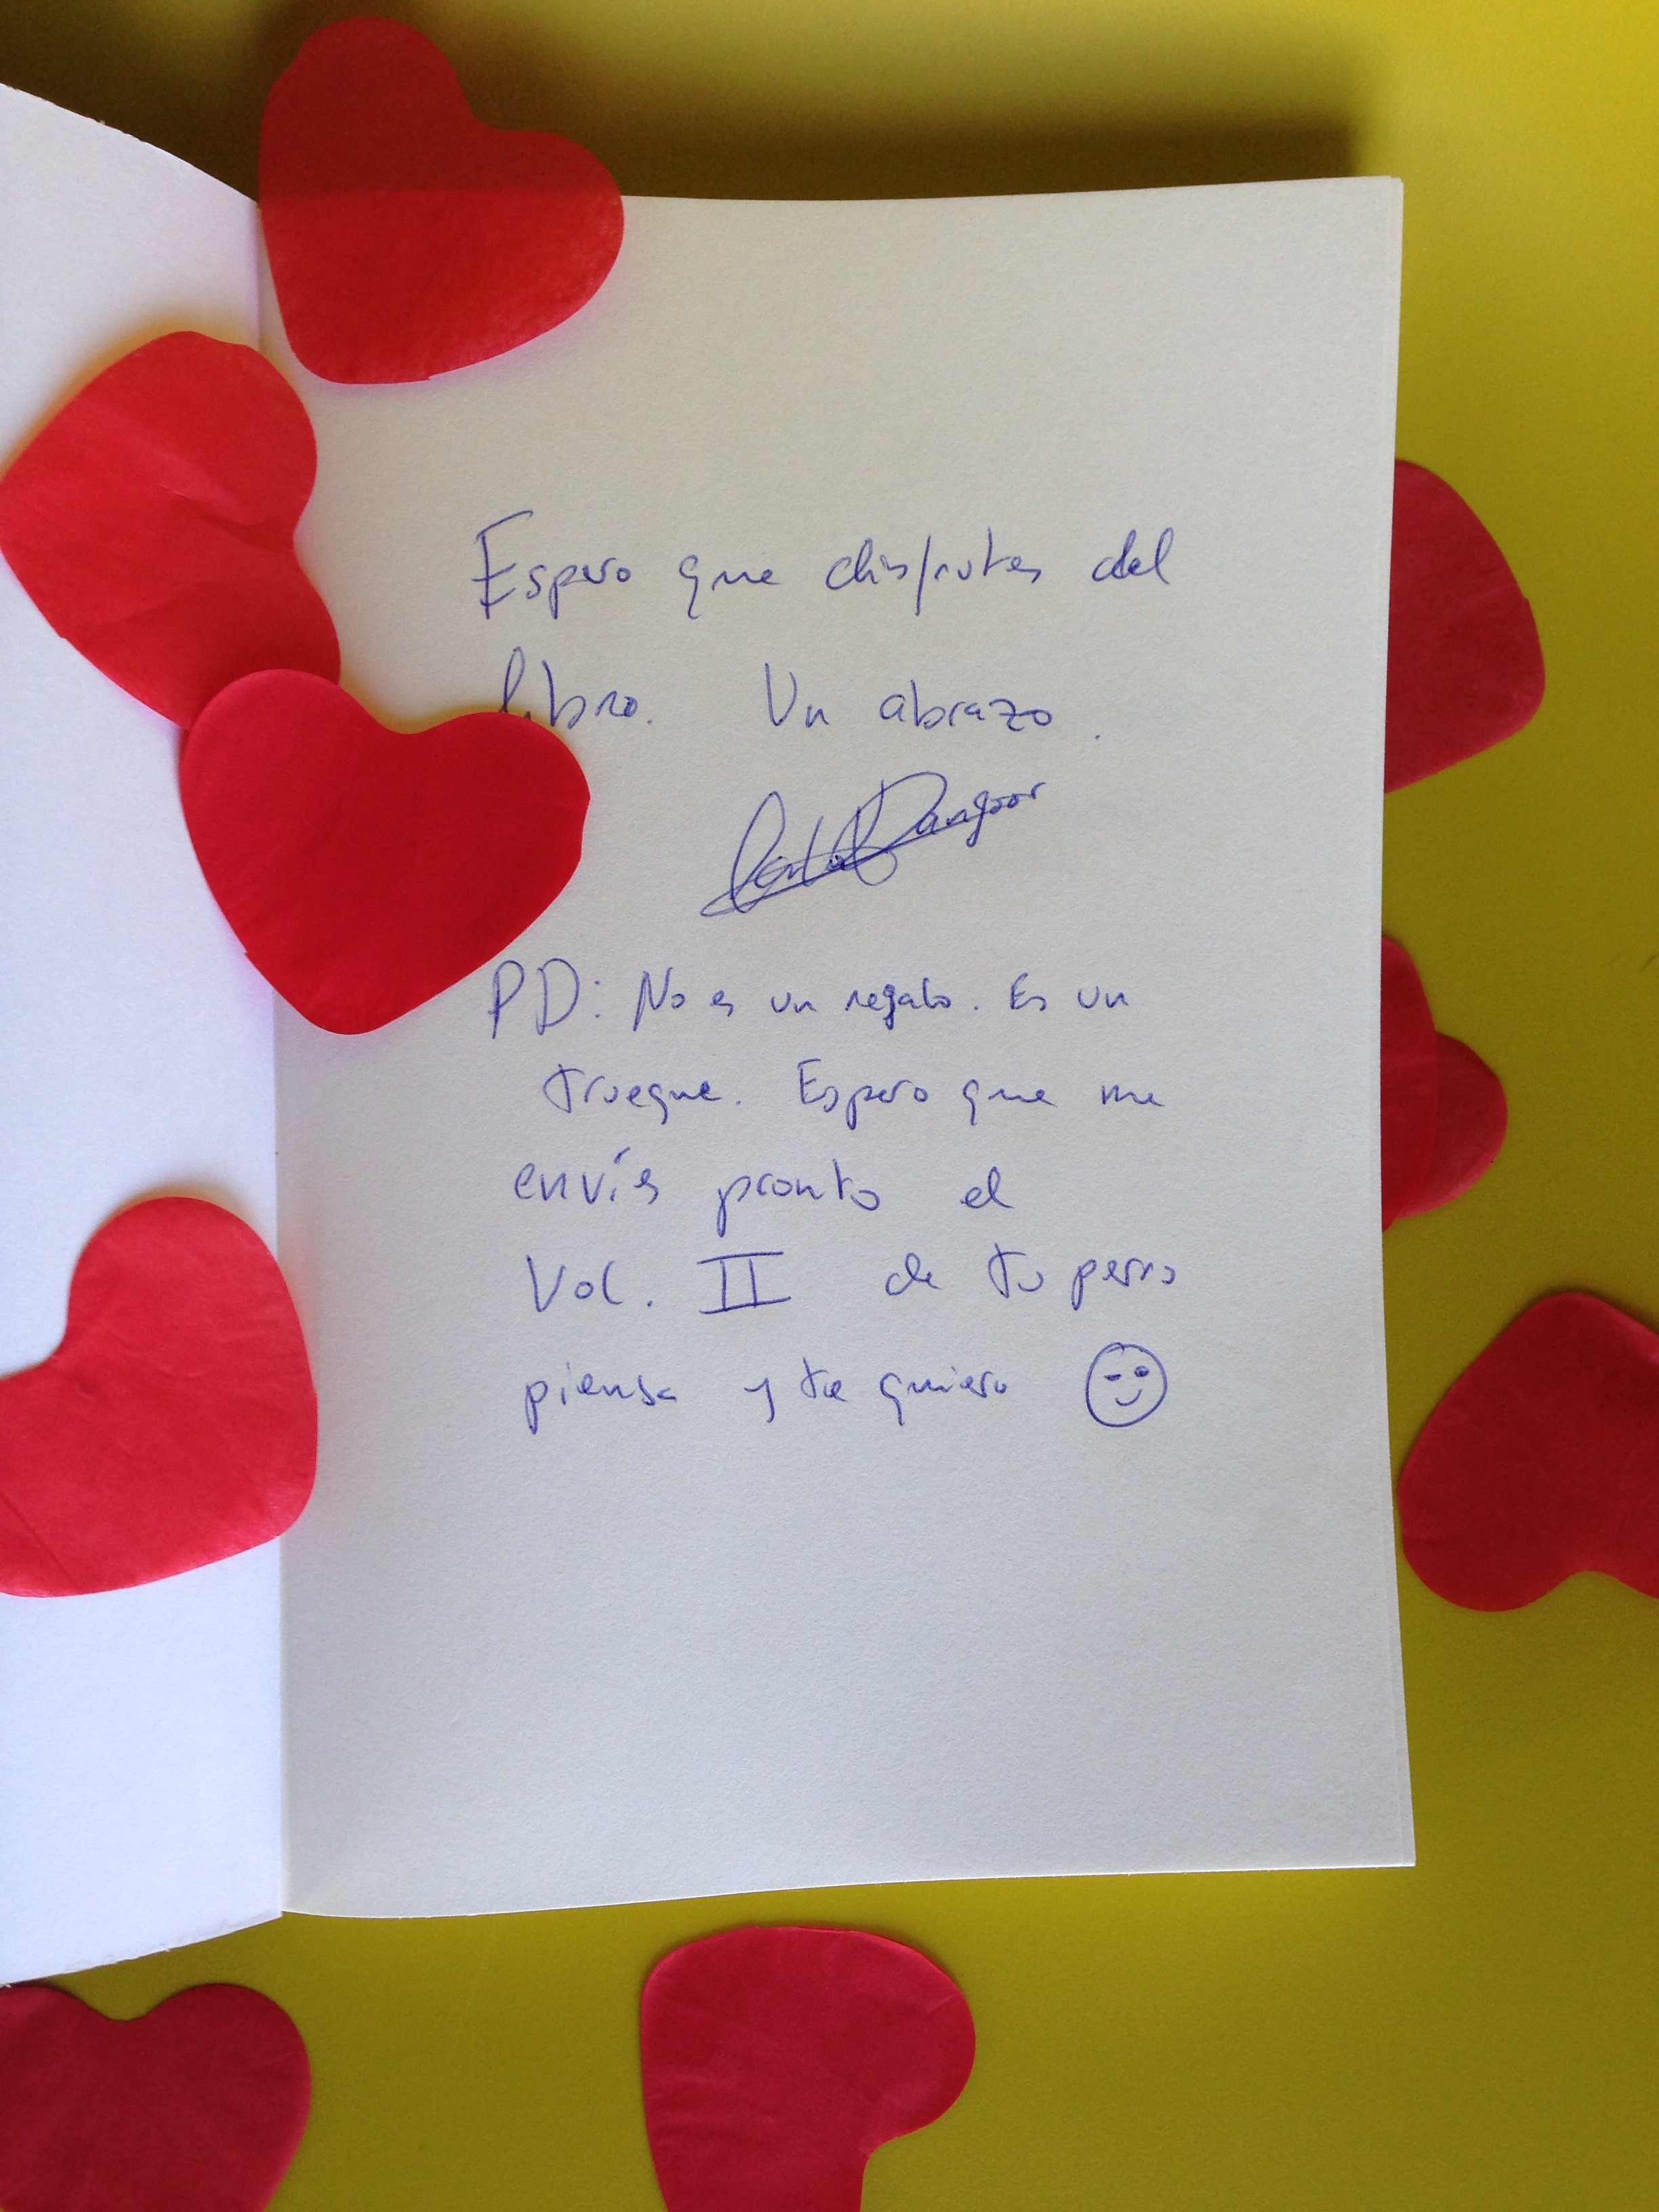 Espero que disfrutes del
libro. Un abrazo.
PD: No es un regalo. Es un
trueque. Espero que me
envíes pronto el
Vol. II de tu perro
piensa y te quiero